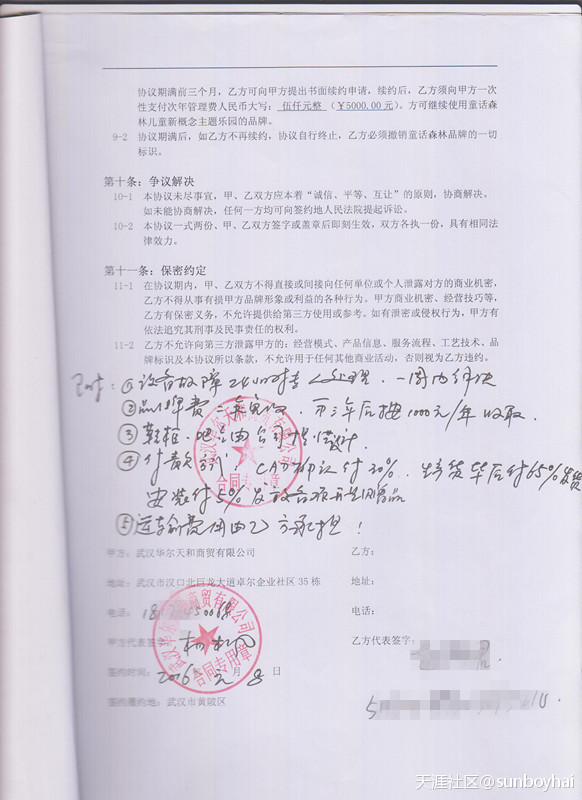 协议期满前三个月，乙方可向甲方提出书面续约申请，续约后，乙方须向甲方一次
性支付次年管理费人民币大写：伍仟元整（￥5000.00元）。方可继续使用童话森
林儿童新概念主题乐园的品牌。
9-2 协议期满后，如乙方不再续约，协议自行终止，乙方必须撤销童话森林品牌的一切
标识。
第十条：争议解决
10-1 本协议未尽事宜，甲、乙双方应本着“诚信、平等、互让”的原则，协商解决。
如未能协商解决，任何一方均可向签约地人民法院提起诉讼。
10-2 本协议一式两份、甲、乙双方签字或盖章后即刻生效，双方各执一份，具有相同法
律效力。
第十一条：保密约定
11-1 在协议期内，甲、乙双方不得直接或间接向任何单位或个人泄露对方的商业机密，
乙方不得从事有损甲方品牌形象或利益的各种行为。甲方商业机密、经营技巧等，
乙方有保密义务，不允许提供给第三方使用或参考。如有泄密或侵权行为，甲方有
依法追究其刑事及民事责任的权利。
11-2 乙方不允许向第三方泄露甲方的：经营模式、产品信息、服务流程、工艺技术、品
牌标识及本协议所以条款，不允许用于任何其他商业活动，否则视为乙方违约。
附：①设备故障24小时专人处理，一周内解决
②品牌费二年免收，第三年后按1000元/年收取．
③鞋柜、地台由公司提供设计
④付款方式：CAD 付30%．生产货毕后付65%发货
安装付5%
⑤运输费用由乙方承担！
甲方：武汉华尔天和商贸有限公司 乙方：
地址：武汉市汉口北巨龙大道卓尔企业社区35栋 地址：
电话： 电话：
甲方代表签字： 乙方代表签字：
签约时间：2016年元月8日
签约履约地：武汉市黄陂区
合同专用章
合同专用章
天涯社区@sunboyhai